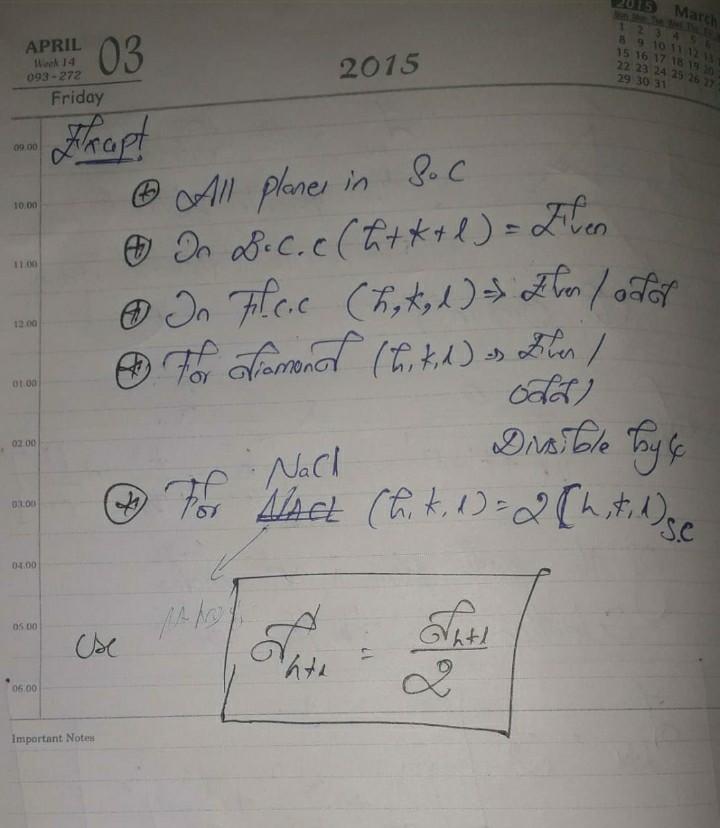 APRIL 03
Week 14
093-272
Friday
2015
2015 March
Mon Tue Wed Thu Fri
1 2 3 4 5 6
8 9 10 11 12 13
15 16 17 18 19 20
22 23 24 25 26 27
29 30 31
09.00
10.00
11.00
12.00
01.00
02.00
03.00
04.00
05.00
06.00
Exapt
All planes in S.C
In B.C.C (h+k+l) = Even
In F.C.C (h,k,l) ⇒ Even / odd
For diamond (h,k,l) ⇒ Even /
odd /
Divsible by 4
NaCl
For NACL (h,k,l) = 2 [h,k,l)S.C
use
d h+l = d h+l / 2
Important Notes